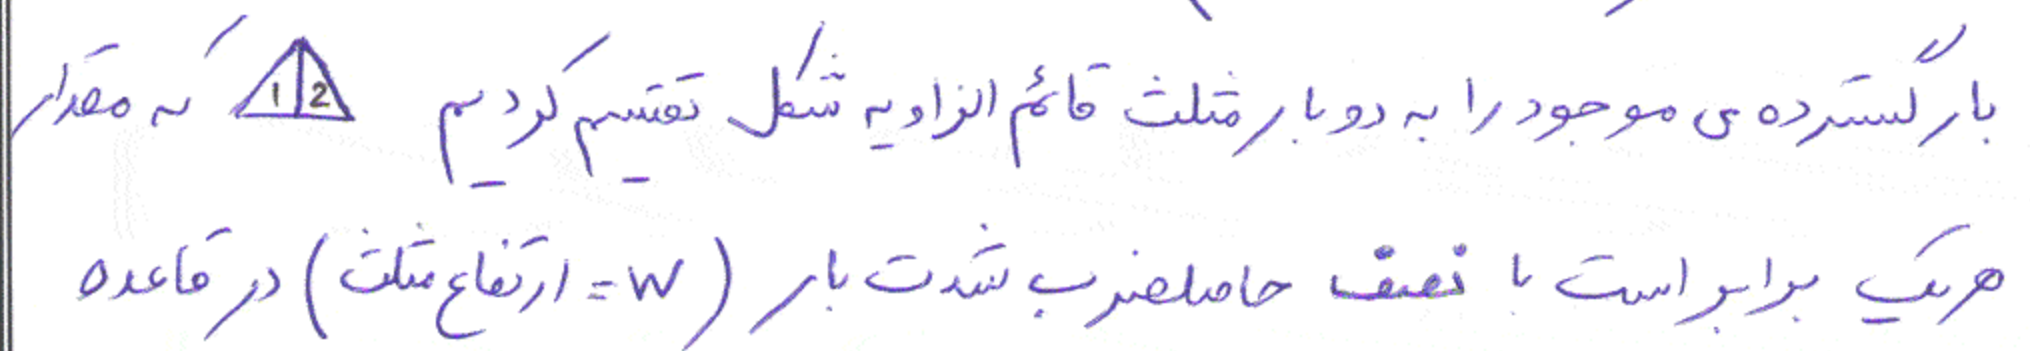 بار گسترده ی موجود را به دو بار مثلث قائم الزاویه شکل تقسیم کردیم 1 2 که مقدار
هریک برابر است با نصف حاصلضرب شدت بار (W = ارتفاع مثلث) در قاعده